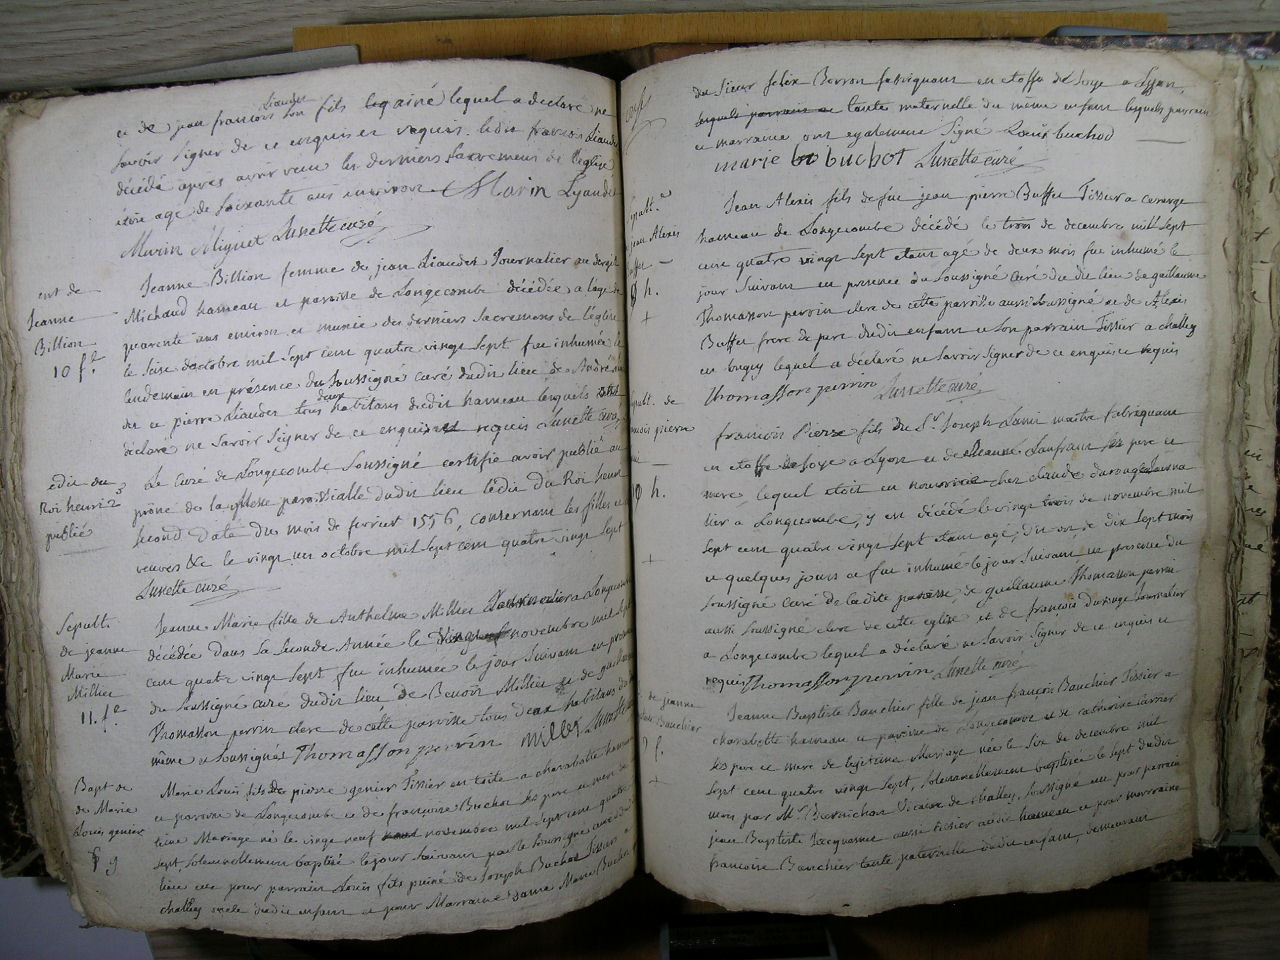 et de jean francois Liauder son fils lequel a declaré ne
savoir signer de ce enquis et requis. ledit francois Liauder
décédé après avoir reçu les derniers sacremens de l'eglise
étoit agé de soixante ans environ. Marin Lyauder
Marin Miguet Lunette curé
ent de
Jeanne
Billion
10 f.e
Jeanne Billion femme de jean Liauder Journalier au dergit
Michaud hameau et paroisse de Longecombe décédée a l'age de
quarente ans environ et munie des derniers sacremens de l'eglise
le seise d'octobre mil sept cent quatre vingt sept fut inhumée le
lendemain en présence du soussigné curé dudit lieu de André
et de pierre Liauder tous deux habitans dudit hameau lesquels ont
déclaré ne savoir signer de ce enquis et requis Lunette curé
edit du
Roi henri 2
publié
Le curé de Longecombe soussigné certifie avoir publié au
prone de la Messe paroissialle dudit lieu l'édit du Roi henri
second daté du mois de fevrier 1556, concernant les filles et
veuves &c le vingt un octobre mil sept cent quatre vingt sept
Lunette curé
Sepult.
de jeanne
Marie
Millier
11. f.e
Jeanne Marie fille de Anthelme Millier Journalier a Longecombe
décédée dans sa seconde Année le novembre mil sept
cent quatre vingt sept fut inhumée le jour suivant en presence
du soussigné curé dudit lieu, de Benoit Millier et de guillaume
Thomasson perrin clerc de cette paroisse tous deux habitans du
même et soussignés Thomasson perrin millet Lunette
Bapt de
de Marie
Louis genier
g 9
Marie Louis fils de pierre genier Tissier en toile a charabotte hameau
et paroisse de Longecombe et de françoise Buchod ses pere et mere de
time Mariage né le vingt neuf novembre mil sept cent quatre
sept, solemnellement baptisé le jour suivant par le soussigné curé du
lieu eut pour parrain Louis fils puiné de Joseph Buchod Tissier a
challey oncle dudit enfant et pour Marraine dame Marie Buchod
du Sieur felix Berron fabriquant en etoffe de soye a Lyon,
lesquels parrain et tante maternelle du même enfant lesquels parrain
et marraine ont egalement signé Louis buchod
marie buchot Lunette curé
pult.e
jean Alexis
Buffet
g h.
Jean Alexis fils de feu jean pierre Buffet Tissier a
hameau de Longecombe décédé le trois de decembre mil sept
cent quatre vingt sept etant agé de deux mois fut inhumé le
jour suivant en presence du soussigné curé dudit lieu de guillaume
Thomasson perrin clerc de cette paroisse aussi soussigné et de Alexis
Buffet frere de pere dudit enfant et son parrain Tissier a challey
en bugey lequel a déclaré ne savoir signer de ce enquis et requis
Thomasson perrin Lunette curé
pult. de
ancois pierre
h.
francois Pierre fils du Sr. Joseph Lami maitre fabriquant
en etoffe de soye a Lyon et de ses pere et
mere, lequel etait en nourrice chez claude durouge Journa
lier a Longecombe, y est décédé le vingt trois de novembre mil
sept cent quatre vingt sept etant agé, d'un an de dix sept mois
et quelques jours et fut inhumé le jour suivant en presence du
soussigné curé de ladite paroisse de guillaume Thomasson perrin
aussi soussigné clerc de cette eglise et de françois durouge Journalier
a Longecombe lequel a déclaré ne savoir signer de ce enquis et
requis Thomasson perrin Lunette curé
de jeanne
Bauchier
f.
Jeanne Baptiste Bauchier fille de jean françois Bauchier Tissier a
charabotte hameau et paroisse de Longecombe et de catherine
ses pere et mere de legitime Mariage née le six de decembre mil
sept cent quatre vingt sept, solemnellement baptisée le sept dudit
mois par Mr. Bernichon Vicaire de challey, soussigné eut pour parrain
jean Baptiste Jacquemet aussi tissier audit hameau et pour marraine
francoise Bauchier tante paternelle dudit enfant, demeurant